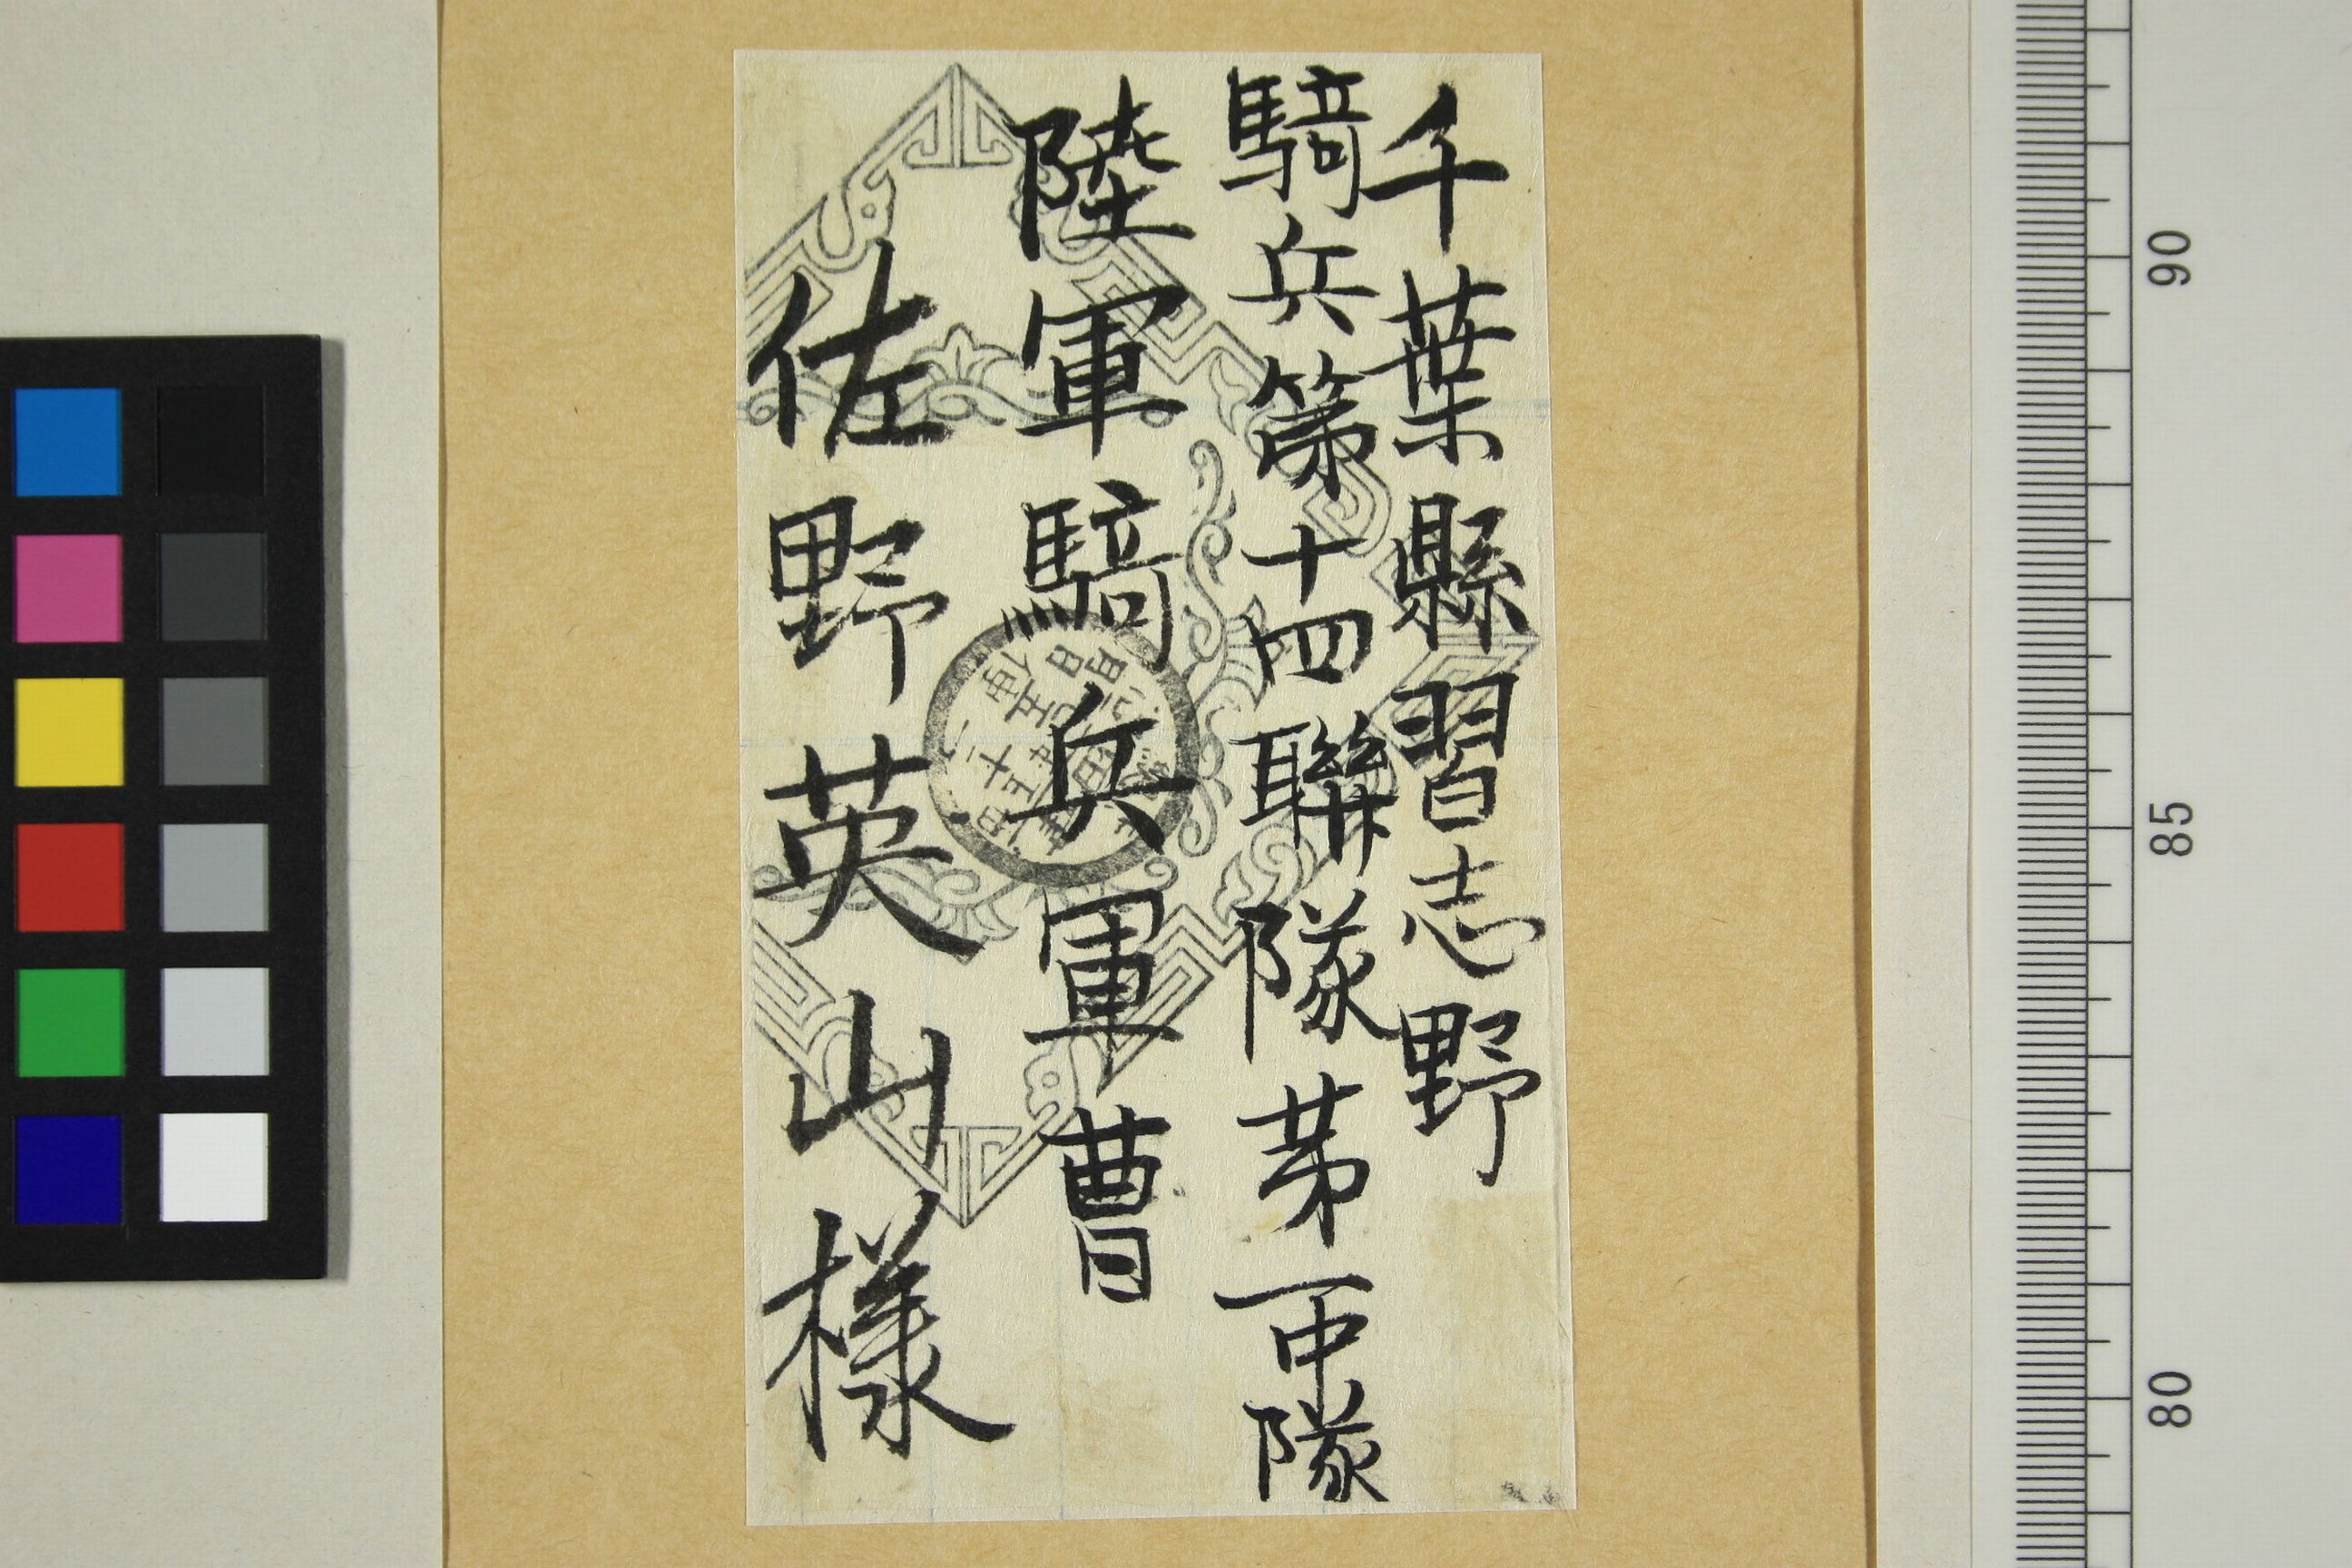 千葉縣習志野
騎兵第十四聯隊第一中隊
陸軍騎兵軍曹
佐野英山様
90
85
80